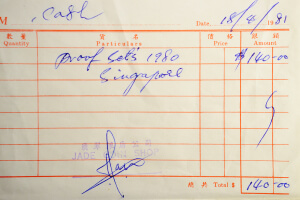 M cash
Date 18/8/1981
數量 貨名 價格 銀額
Quantity Particulars Price Amount
Proof Sets 1980 $140-00
Singapore
JADE SHOP
總共 Total $ 140-00